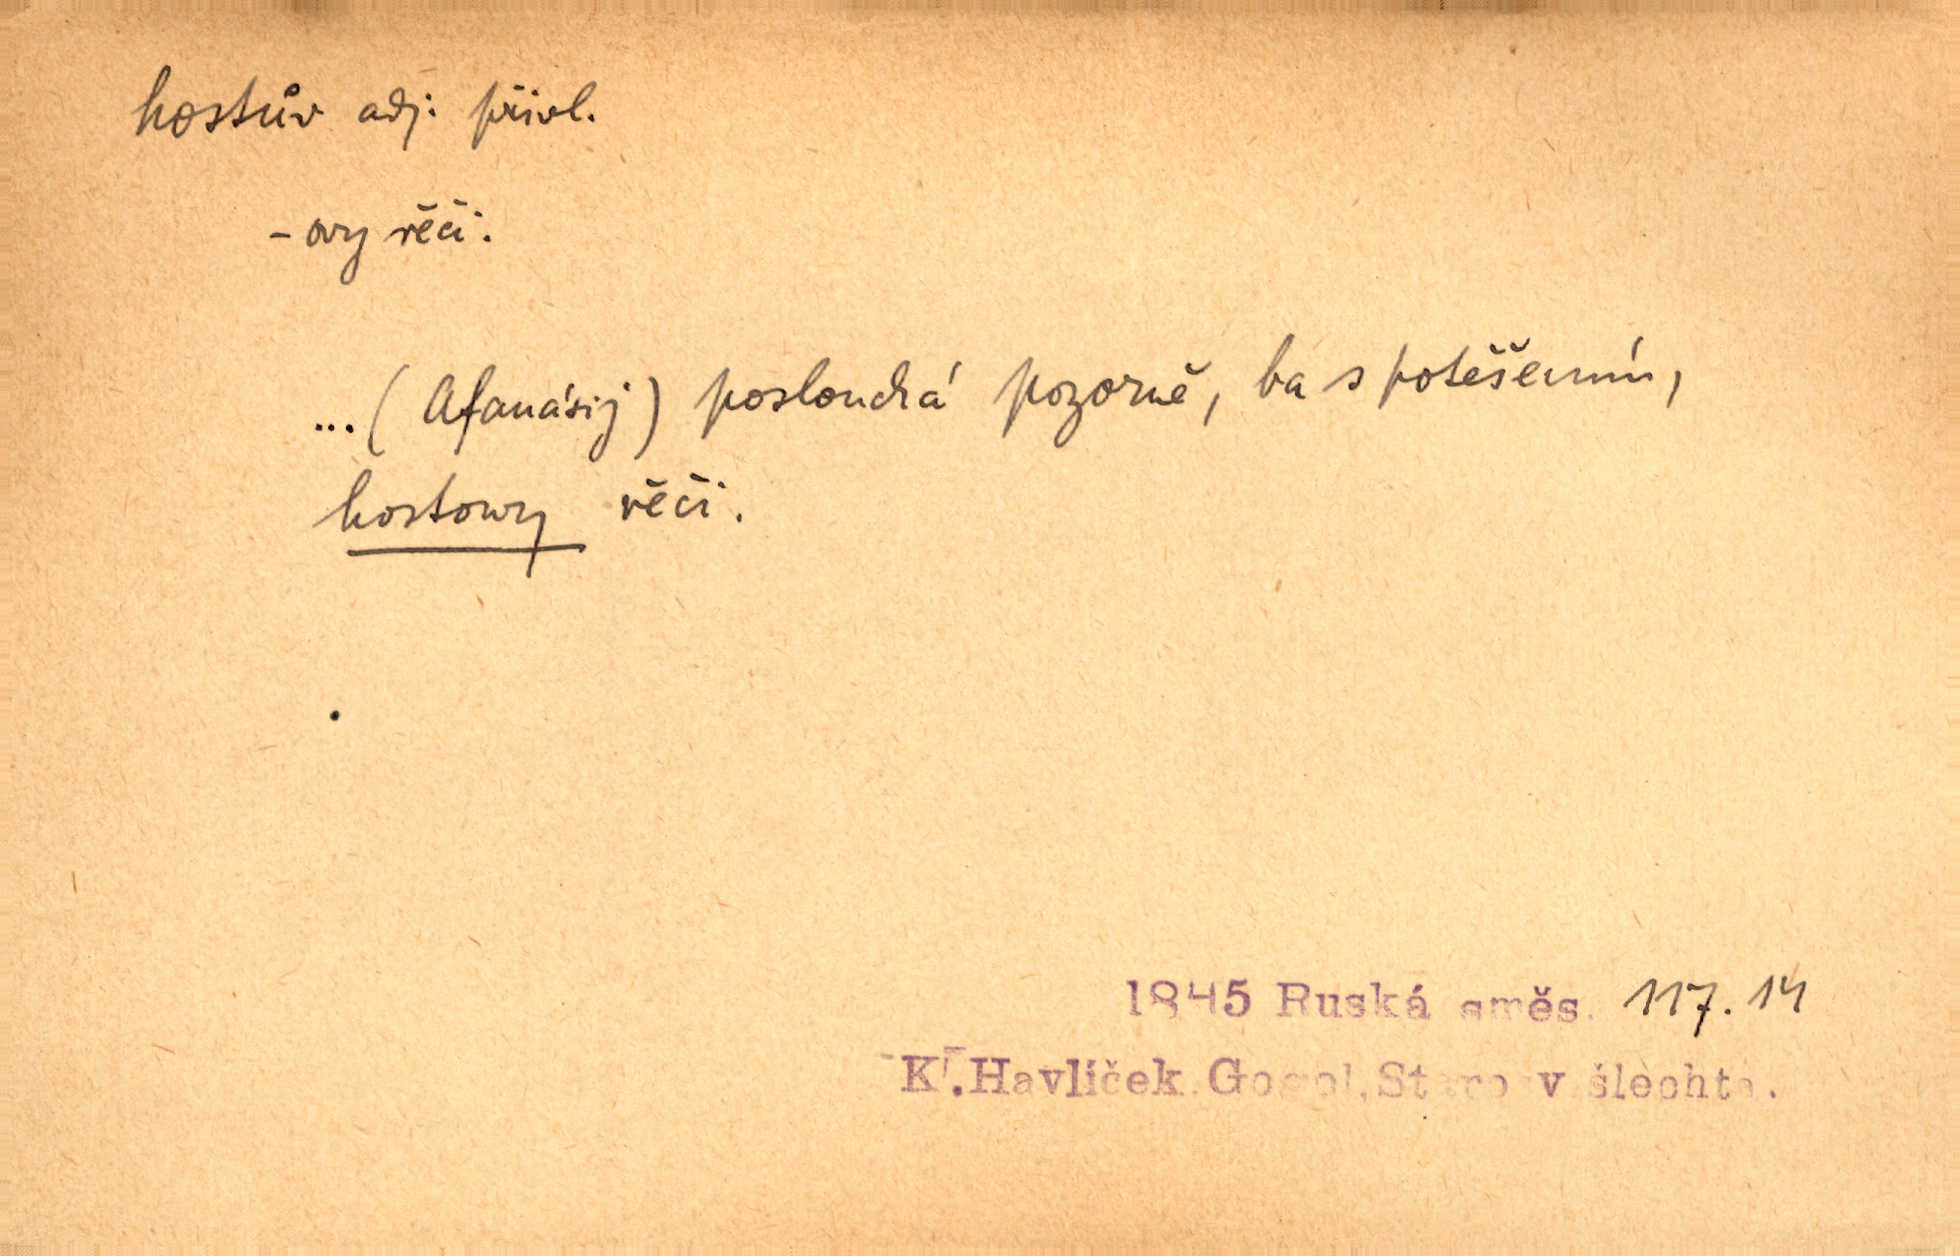 hostův adj. přivl.
-ovy řěči.
...(Afanásij) poslouchá pozorně, ba s potěšením,
hostowy řěči.
1845 Ruská směs. 117.14
K.Havlíček. Gogol, šlechta.